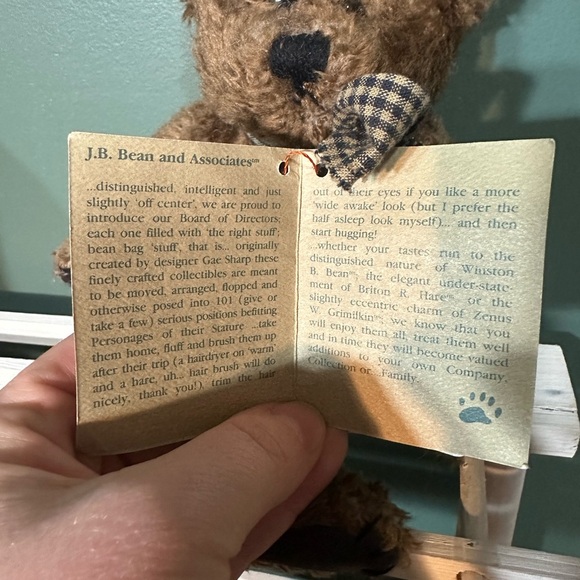 J.B. Bean and Associates℠
...distinguished, intelligent and just
slightly 'off center', we are proud to
introduce our Board of Directors;
each one filled with 'the right stuff';
bean bag 'stuff', that is... originally
created by designer Gae Sharp these
finely crafted collectibles are meant
to be moved, arranged, flopped and
otherwise posed into 101 (give or
take a few) serious positions befitting
Personages of their Stature ...take
them home, fluff and brush them up
after their trip (a hairdryer on 'warm'
and a bare, uh... hair brush will do
nicely, thank you!), trim the hair
out of their eyes if you like a more
'wide awake' look (but I prefer the
half asleep look myself)... and then
start hugging!
...whether your tastes run to the
distinguished nature of "Winston
B. Bean℠, the elegant under-state-
ment of Briton R. Hare℠, or the
slightly eccentric charm of Zenus
W. Grimilkin℠, we know that you
will enjoy them all, treat them well
and in time they will become valued
additions to your own Company,
Collection or...Family.